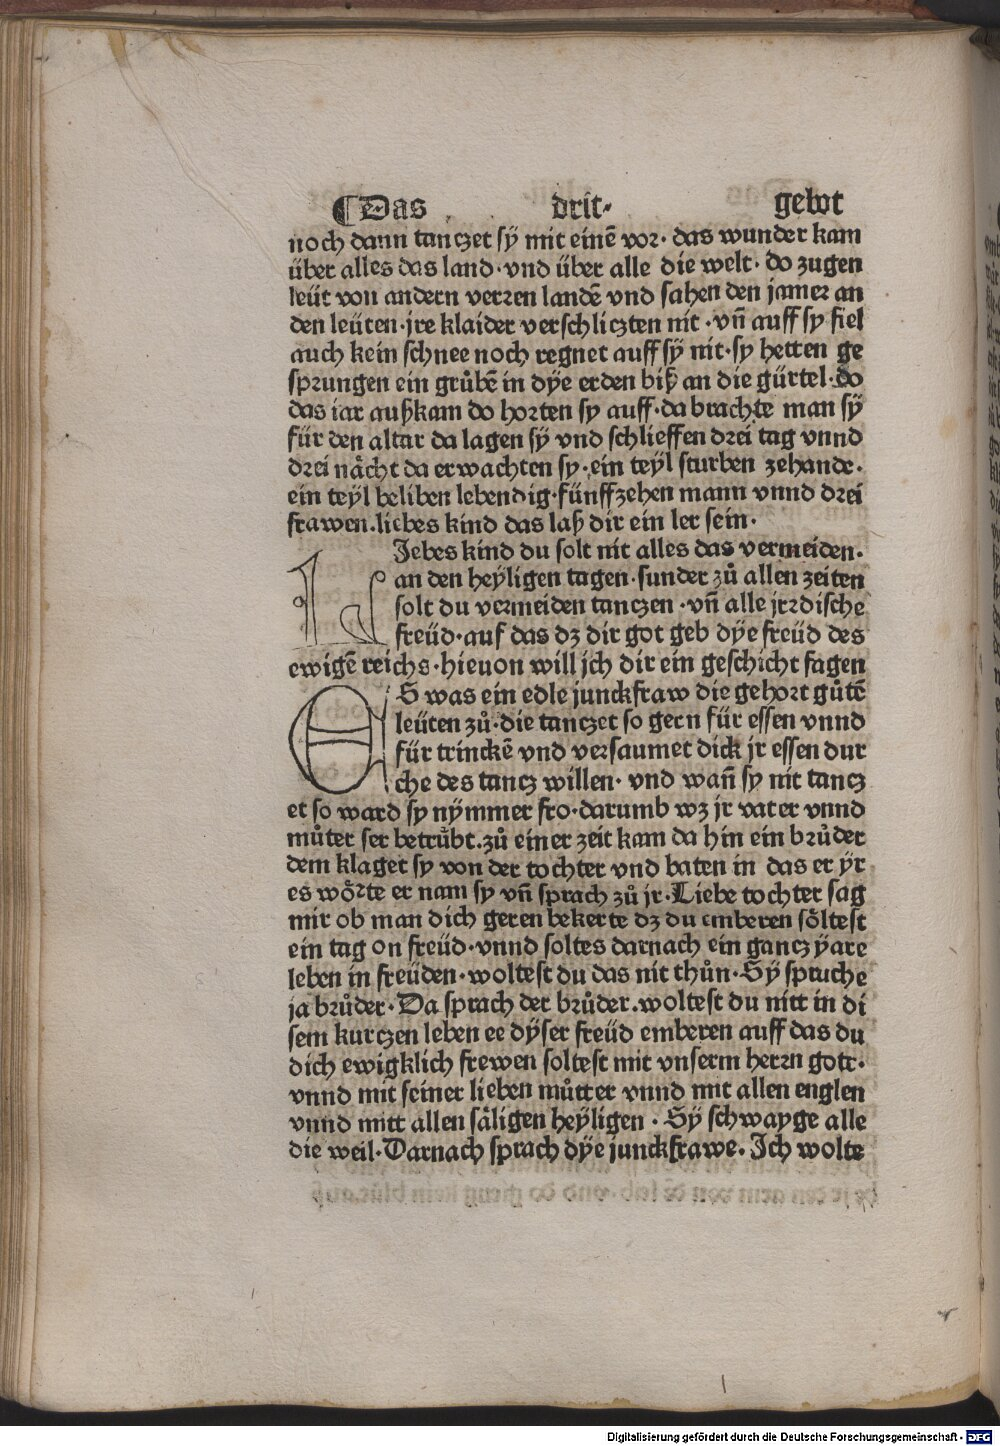 ⸿Das drit· gebot
noch dann tanczet sÿ mit einē vor· das wunder kam
über alles das land·vnd über alle die welt· do zugen
leüt von andern verren landē vnd sahen den jamer an
den leüten·jre klaider verschliczten nit·vñ auff sy fiel
auch kein schnee noch regnet auff sÿ nit·sy hetten ge
sprungen ein grůbē in dÿe erden biß an die gürtel·do
das iar außkam do horten sy auff·da brachte man sÿ
für den altar da lagen sÿ vnd schlieffen drei tag vnnd
drei nǎcht da erwachten sy·ein teÿl sturben zehande·
ein teÿl beliben lebendig·fünffzehen mann vnnd drei
frawen.liebes kind das laß dir ein ler sein·
LIebes kind du solt nit alles das vermeiden·
an den heÿligen tagen·sunder zů allen zeiten
solt du vermeiden tanczen·vñ alle jrrdische
freüd·auf das dz dir got geb dÿe freüd des
ewigē reichs·hieuon will jch dir ein geschicht sagen
ES was ein edle junckfraw die gehort gůtē
leüten zů·die tanczet so gern für essen vnnd
für trinckē vnd versaumet dick jr essen dur
che des tancz willen· vnd wañ sy nit tancz
et so ward sy nÿmmer fro·darumb wz jr vater vnnd
můter ser betrůbt.zů einer zeit kam da hin ein brůder
dem klaget sy von der tochter vnd baten in das er ÿr
es wo̊rte er nam sy vñ sprach zů jr·Liebe tochter sag
mir ob man dich geren bekerte dz du emberen so̊ltest
ein tag on freüd·vnnd soltes darnach ein gancz ÿare
leben in freüden·woltest du das nit thůn·Sÿ sprache
ja brůder·Da sprach der brůder.woltest du nitt in di
sem kurczen leben ee dÿser freüd emberen auff das du
dich ewigklich frewen soltest mit vnserm herrn gott·
vnnd mit seiner lieben můtter vnnd mit allen englen
vnnd mitt allen sǎligen heÿligen·Sÿ schwayge alle
die weil·Darnach sprach dÿe junckfrawe·Ich wolte
Digitalisierung gefördert durch die Deutsche Forschungsgemeinschaft - DFG